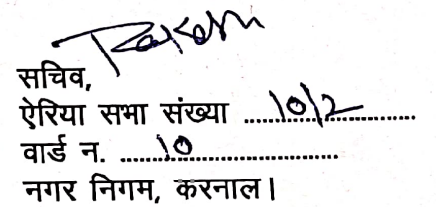 Rakesh
सचिव,
ऐरिया सभा संख्या ....10/2................
वार्ड न. ......10..........................
नगर निगम, करनाल।